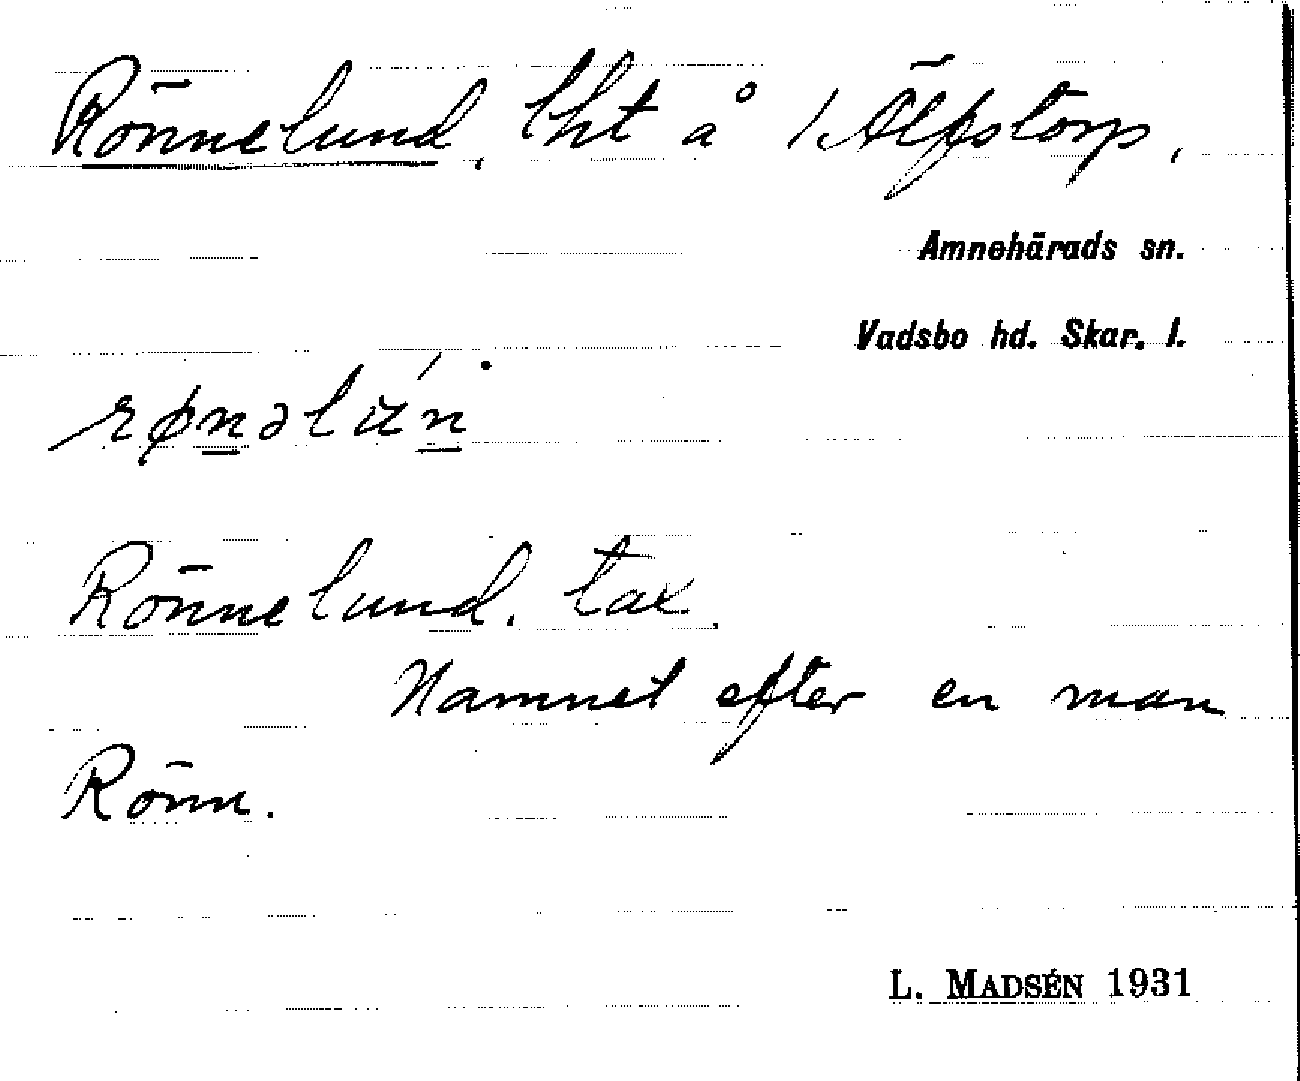 Rönnelund, lht å 1 Älfstorp,
Amnehärads sn.
Vadsbo hd. Skar. l.
Rönnelund. tax.
Namnet efter en man
Rönn.
L. MADSÉN 1931